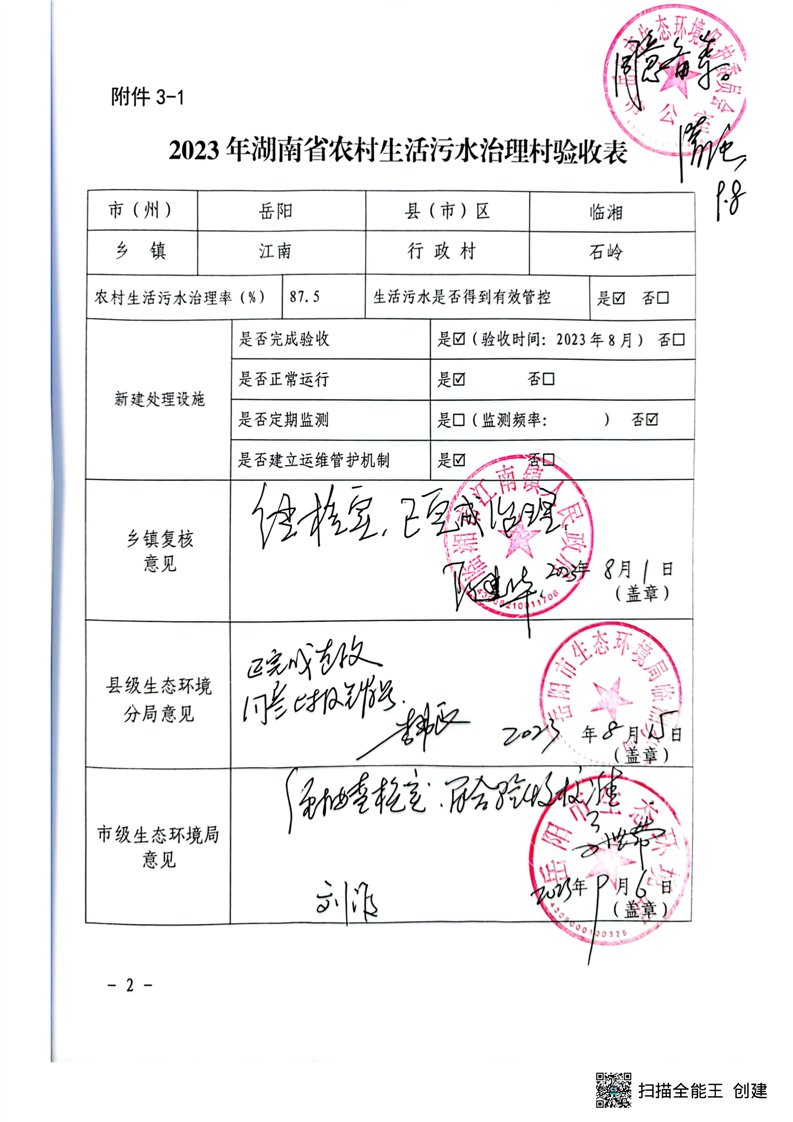 同意备案
9.8
附件 3-1
2023 年湖南省农村生活污水治理村验收表
市（州） 岳阳 县（市）区 临湘
乡 镇 江南 行 政 村 石岭
农村生活污水治理率（%） 87.5 生活污水是否得到有效管控 是☑ 否☐
新建处理设施
是否完成验收 是☑（验收时间：2023 年 8 月） 否☐
是否正常运行 是☑ 否☐
是否定期监测 是☐（监测频率： ） 否☑
是否建立运维管护机制 是☑ 否☐
乡镇复核
意见
经核实，已完成治理。
江南镇人民政府
2023年 8月 1 日
（盖章）
县级生态环境
分局意见
已完成整改
岳阳市生态环境局临湘分局
2023 年 8 月 15 日
（盖章）
市级生态环境局
意见
经抽查核实，符合验收标准
岳阳市生态环境局
2023年 9 月 6 日
（盖章）
4306000100326
- 2 -
扫描全能王 创建